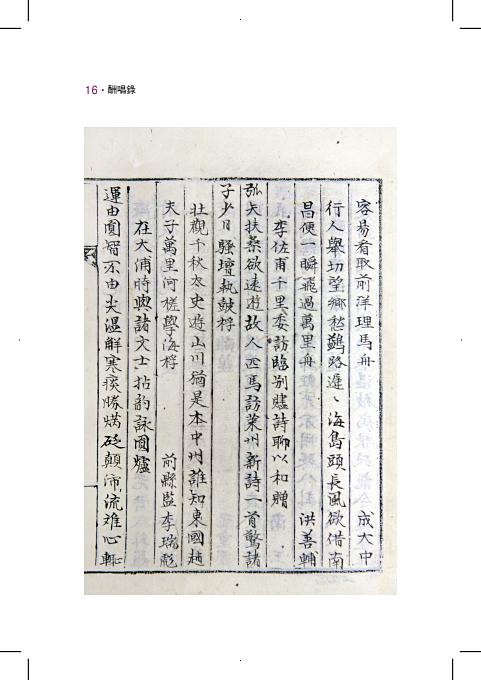 16 · 酬唱錄
容易看取前洋理馬舟 成大中
行人擧切望鄕愁鷁路遲〻海島頭長風欲借南
昌便一瞬飛過萬里舟 洪善輔
李佐甫千里委訪臨別爐詩聊以和贈
弧矢扶桑欲遠遊故人匹馬訪萊州新詩一首驚諸
子少日騷壇執鼓桴
壯觀千秋太史遊山川猶是本中州誰知東國趙
夫子萬里河槎學海桴 前縣監李瑞彪
在大浦時與諸文士拈韵詠圓爐
運由圓智不由尖溫解寒痰勝炳砭顚沛流难心輒